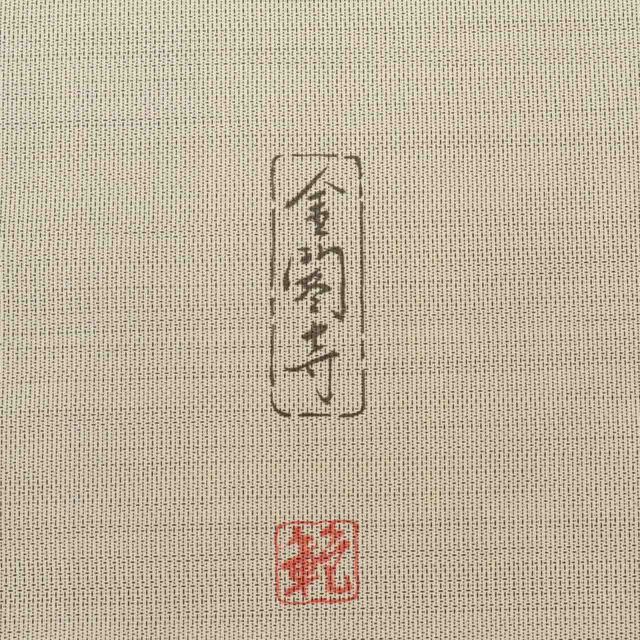 金閣寺
乾